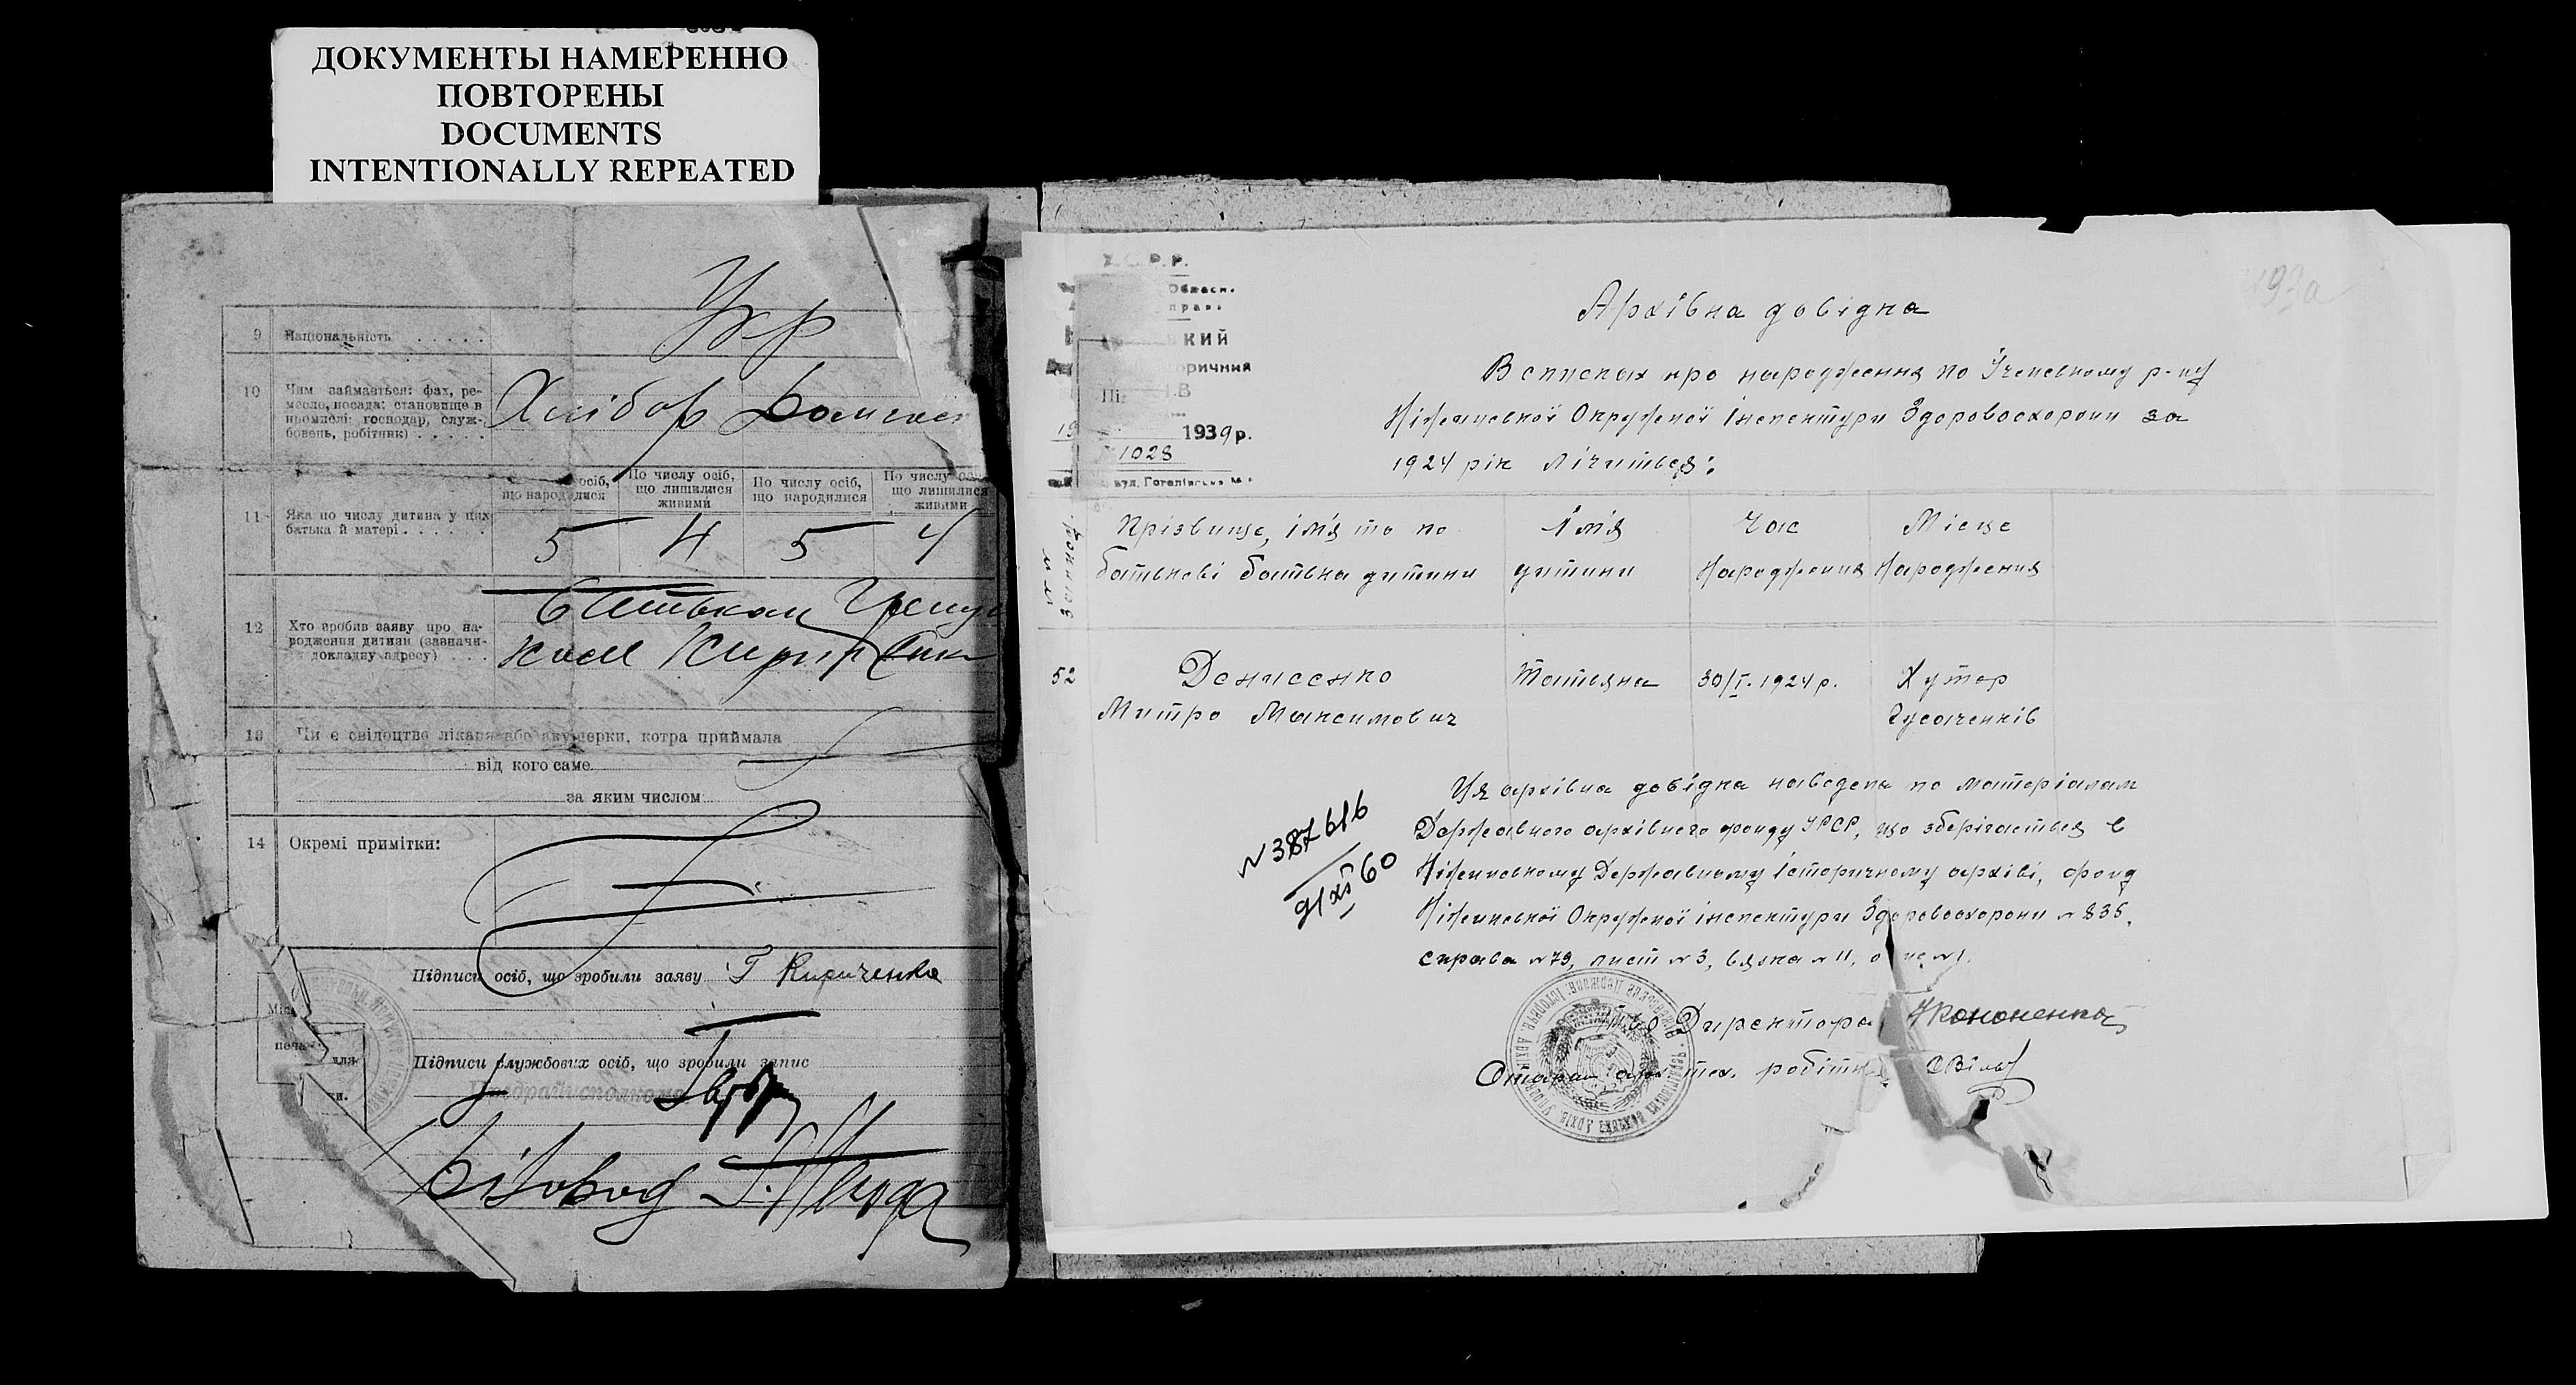 ДОКУМЕНТЫ НАМЕРЕННО
ПОВТОРЕНЫ
DOCUMENTS
INTENTIONALLY REPEATED
9 Національність . . . . .
Укр
10 Чим займається: фах, ре-
месло, посада; становище в
промислі: господар, служ-
бовець, робітник) . . . . .
Хлібор
осіб,
що народилися
По числу осіб,
що лишилися
живими
По числу осіб,
що народилися
По числу
що лишилися
живими
11 Яка по числу дитина у цих
батька й матері . . . . . .
5 4 5 4
12 Хто зробив заяву про на-
родження дитини (зазначи-
докладну адресу) . . .
батьком
13 Чи є свідоцтво лікаря або акушерки, котра приймала
від кого саме
за яким числом
14 Окремі примітки:
Підписи осіб, що зробили заяву Г Кириченко
для
Підписи службових осіб, що зробили запис
Діловод
Р.
Обласн.
ВКИЙ
оричния
1939 р.
1028
493а
Архівна довідка
В списках про народження по Ічнєвському р-ну
Ніженської Окружної Інспектури Здоровоохорони за
1924 рік лічиться:
Прізвище, ім'я та по
батькові батька дитини
Ім'я
дитини
Час
Народження
Місце
Народження
52
Денисенко
Митро Максимович
Татьяна
30/I. 1924 р.
Хутор
Гусаченків
Ця архівна довідка наведена по матеріалам
Державного архівного фонду УРСР, що зберігається в
Ніженському Державному Історичному архіві, фонд
Ніженської Окружної інспектури Здоровоохорони № 835,
справа № 79, лист № 3, вязка № 11, о №1.
N 387616
9/XI 60
Директора Кононенко
Старш. арх. тех. робітн